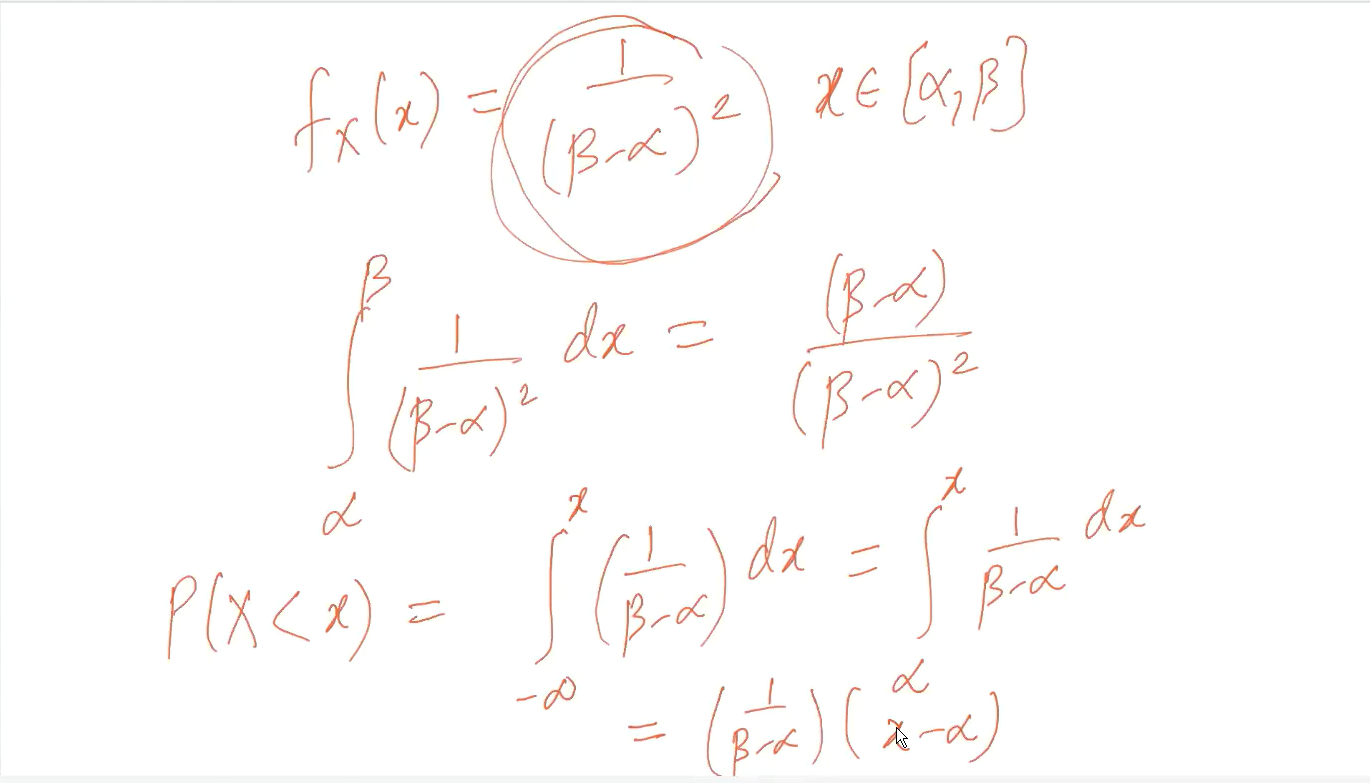 f_X(x) = 1/(β-α)² x ∈ [α, β]
∫_α^β 1/(β-α)² dx = (β-α)/(β-α)²
P(X < x) = ∫_{-∞}^x (1/(β-α)) dx = ∫_α^x 1/(β-α) dx
= (1/(β-α)) (x-α)